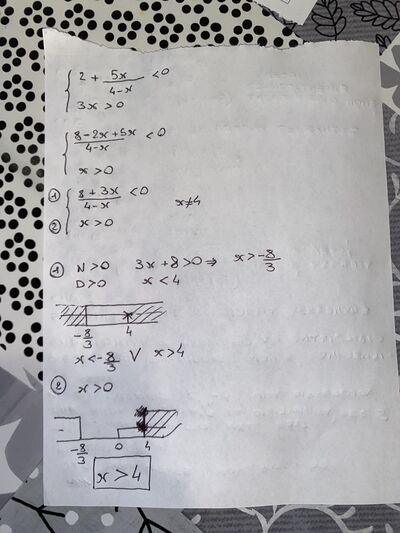 { 2 + 5x/(4-x) < 0
3x > 0
{ (8-2x+5x)/(4-x) < 0
x > 0
① { (8+3x)/(4-x) < 0 x≠4
② x > 0
① N>0 3x+8>0 ⇒ x>-8/3
D>0 x<4
-8/3 4
x<-8/3 V x>4
② x>0
-8/3 0 4
x>4